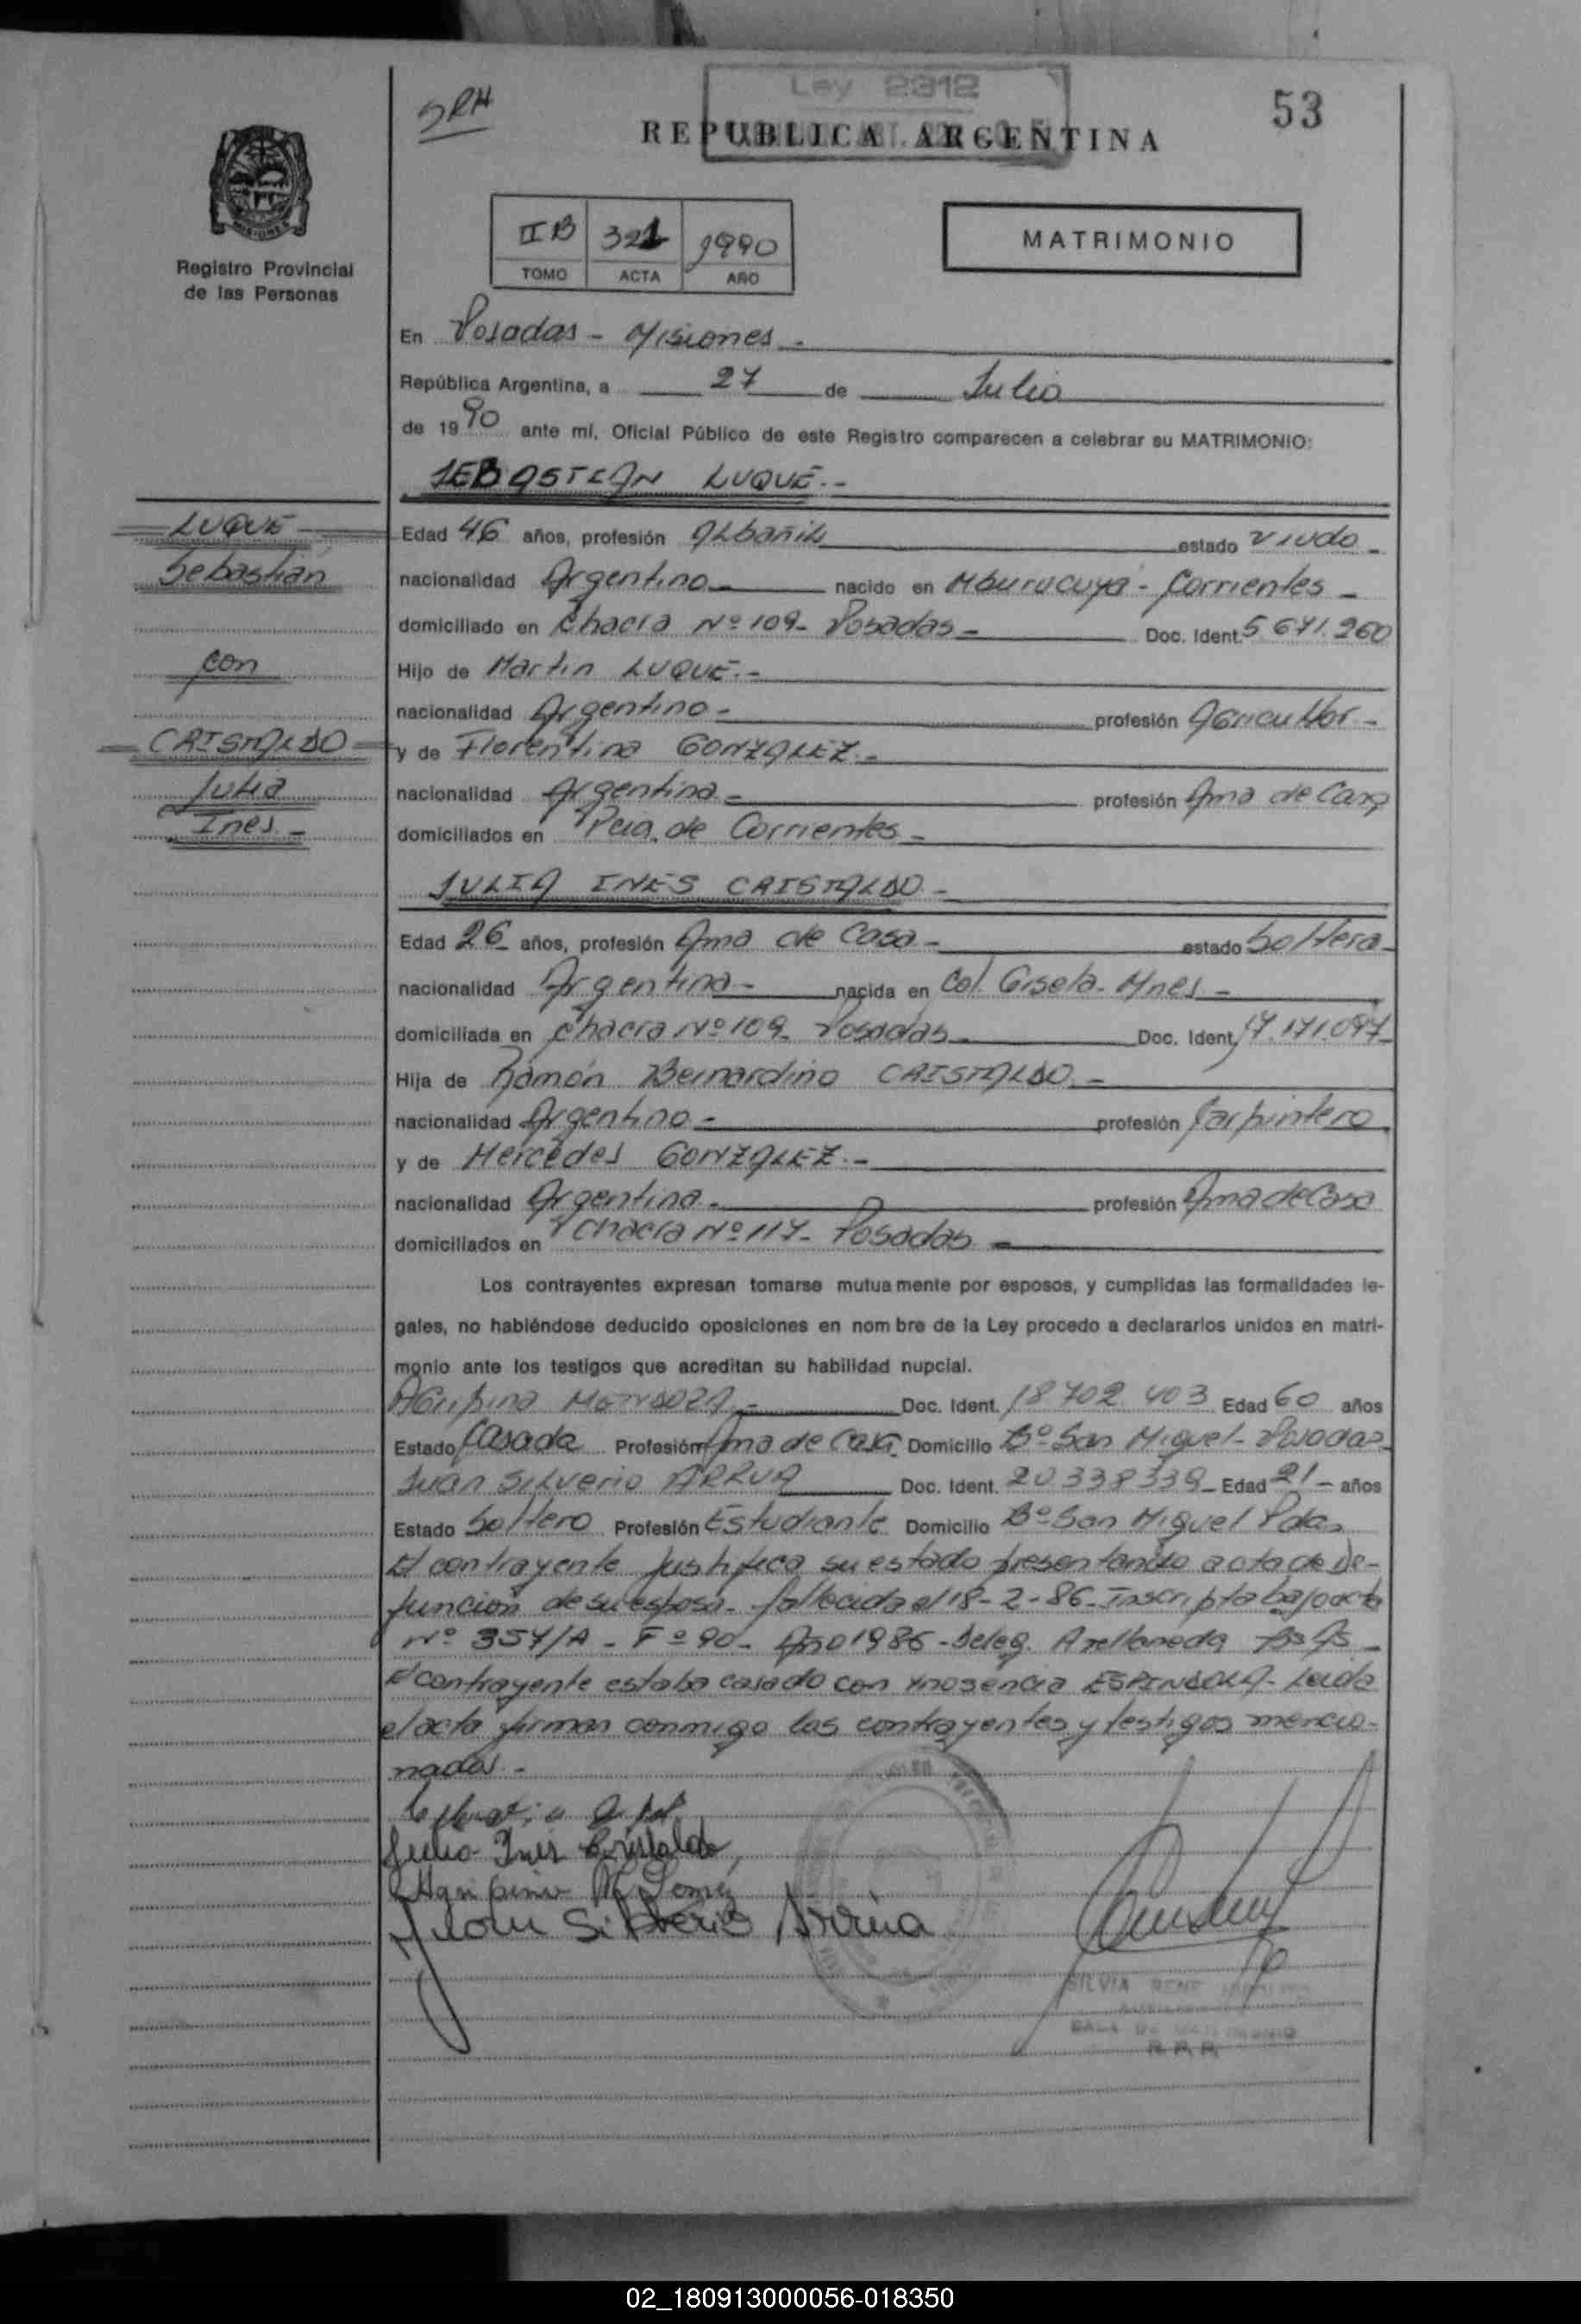 SRH
Ley 2312
53
REPUBLICA ARGENTINA
MISIONES
Registro Provincial
de las Personas
II B 321 1990
TOMO ACTA AÑO
MATRIMONIO
En Posadas - Misiones -
República Argentina, a 27 de Julio
de 1990 ante mí, Oficial Público de este Registro comparecen a celebrar su MATRIMONIO:
SEBASTIAN LUQUE.-
LUQUE
Sebastián
con
CRISTALDO
Julia
Inés.-
Edad 46 años, profesión Albañil estado viudo -
nacionalidad Argentino - nacido en Mburucuyá - Corrientes -
domiciliado en Chacra Nº 109 - Posadas - Doc. Ident. 5.671.260
Hijo de Martín LUQUE.-
nacionalidad Argentino - profesión Agricultor -
y de Florentina GONZALEZ.-
nacionalidad Argentina - profesión Ama de Casa
domiciliados en Pcia. de Corrientes -
JULIA INES CRISTALDO.-
Edad 26 - años, profesión Ama de Casa - estado Soltera -
nacionalidad Argentina - nacida en Col. Gisela - Mnes -
domiciliada en Chacra Nº 109 - Posadas - Doc. Ident. 17.171.097 -
Hija de Ramón Bernardino CRISTALDO.-
nacionalidad Argentino - profesión Carpintero
y de Mercedes GONZALEZ.-
nacionalidad Argentina - profesión Ama de Casa
domiciliados en Chacra Nº 117 - Posadas -
Los contrayentes expresan tomarse mutuamente por esposos, y cumplidas las formalidades le-
gales, no habiéndose deducido oposiciones en nombre de la Ley procedo a declararlos unidos en matri-
monio ante los testigos que acreditan su habilidad nupcial.
Agripina MENDOZA - Doc. Ident. 18.702.403 Edad 60 años
Estado Casada Profesión Ama de Casa Domicilio Bº San Miguel - Posadas
Juan Silverio ARRUA Doc. Ident. 20.338.339 - Edad 21 - años
Estado Soltero Profesión Estudiante Domicilio Bº San Miguel Pdas
El contrayente justifica su estado presentando acta de De-
función de su esposa - fallecida el 18-2-86 - Inscripta bajo acta
Nº 357/A - Fº 90 - Año 1986 - Deleg. Avellaneda Bs As -
El contrayente estaba casado con Inosencia ESPINDOLA - Leída
el acta firman conmigo los contrayentes y testigos mencio-
nados.-
Julia Inés Cristaldo
Agripina M
Juan Silverio Arrua
SILVIA RENE
SALA DE MATRIMONIO
R. P. P.
02_180913000056-018350